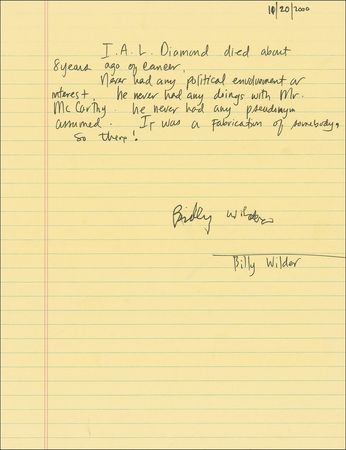 10/20/2000
I.A.L. Diamond died about
8 years ago of cancer.
Never had any political envolvment or
interest. he never had any doings with Mr.
McCarthy. he never had any pseudonym
assumed. It was a fabrication of somebody,
So there!
Billy Wilder
Billy Wilder